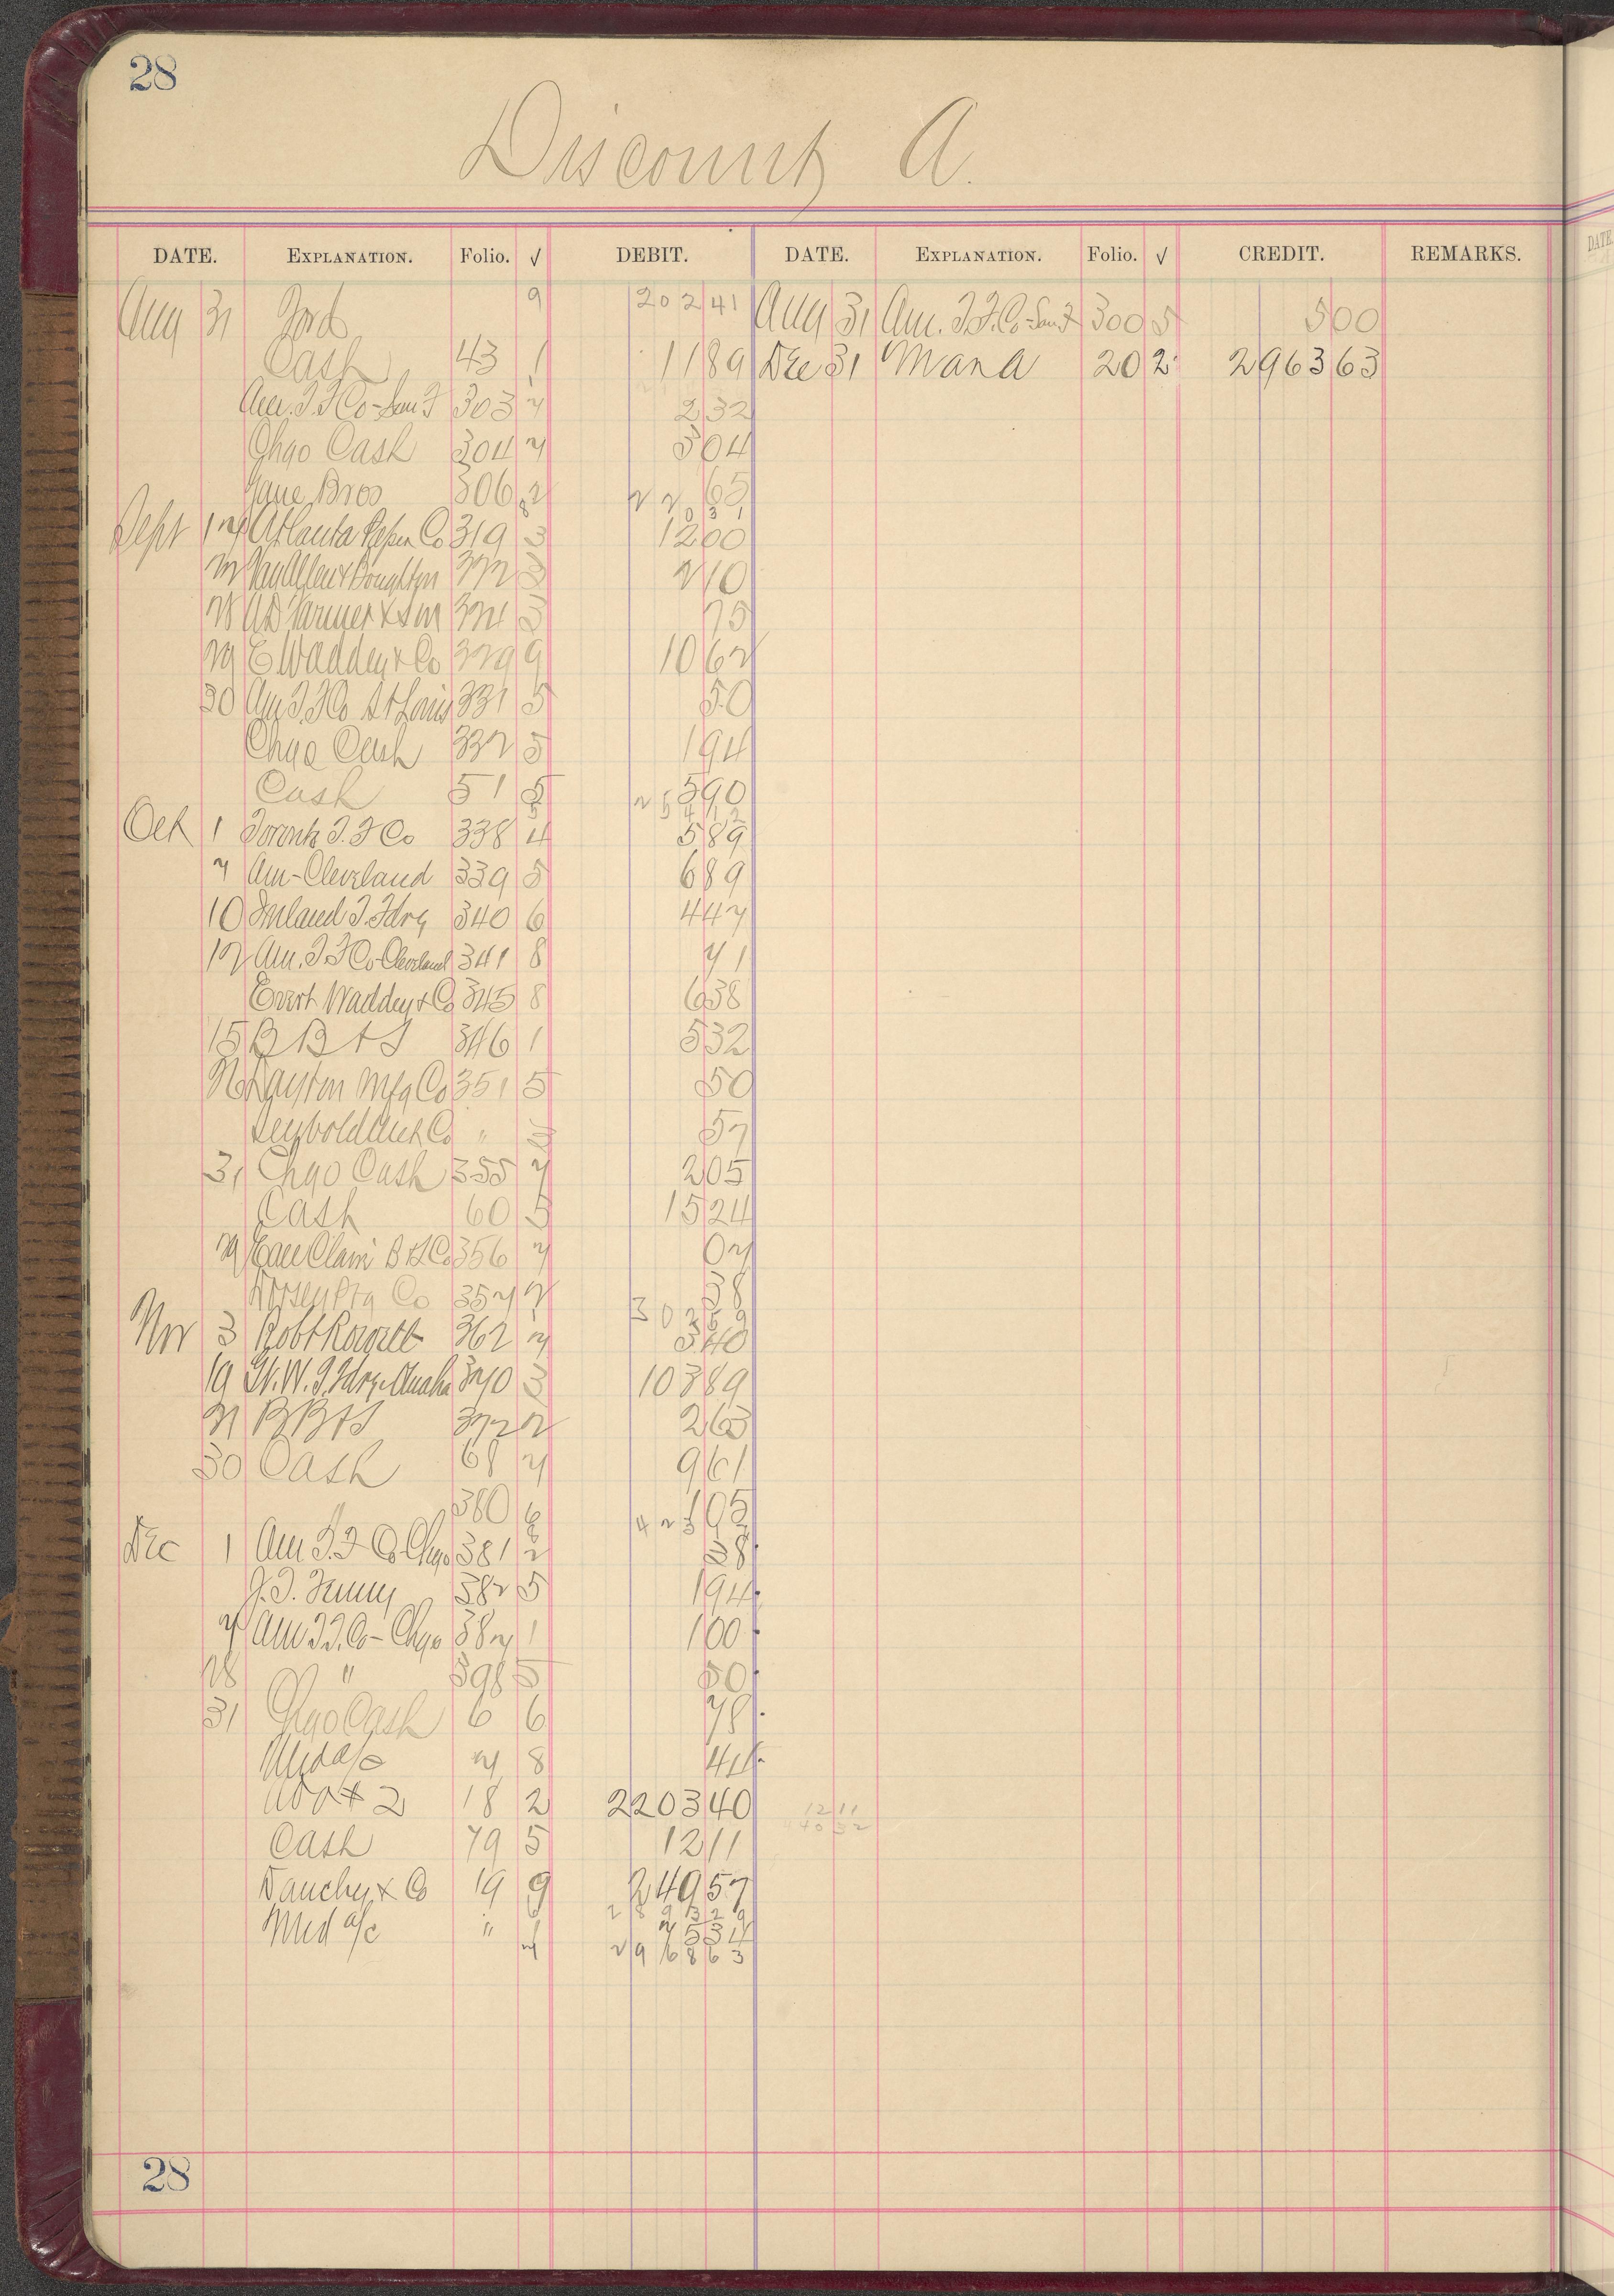 28
Discount A.
DATE. EXPLANATION. Folio. √ DEBIT. DATE. EXPLANATION. Folio. √ CREDIT. REMARKS.
Aug 31 Ford 9 202 41 Aug 31 Am. T.F. Co-San F 300 5 5 00
Cash 43 1 11 89 Dec 31 Man a 20 2 2963 63
Am. T.F Co-San F 303 7 2 32
Chgo Cash 304 7 5 04
Bros 306 2 65
22 0 31
Sept 17 Atlanta Paper Co 319 3 12 00
Van Allen & Boughton 2 10
28 A D Farmer & Son 3 75
29 E Waddey & Co 329 9 10 62
30 Am T.F Co St Louis 331 5 50
Chgo Cash 332 5 1 94
Cash 51 5 5 90
25 4 12
Oct 1 Toronto T. F Co 338 4 5 89
7 Am-Cleveland 339 5 6 89
10 Inland T. Fdry 340 6 4 47
12 Am. T. F Co-Cleveland 341 8 71
Evert Waddey & Co 345 8 6 38
15 B B & S 346 1 5 32
26 Dayton Mfg Co 351 5 50
Co " 57
31 Chgo Cash 355 7 2 05
Cash 60 5 15 24
29 Eau Claire B & S Co 356 7 07
Co 357 2 38
30 2 5 9
Nov 3 Robt Rowell 362 7 5 40
19 G. W. T. Fdry-Omaha 370 3 103 89
21 B B & S 372 2 2 63
30 Cash 68 7 9 61
380 6 1 05
Dec 1 Am T. F Co Chgo 381 2 38
J. T. 382 5 1 94
7 Am T.F. Co- Chgo 387 1 1 00
28 " 398 5 50
31 Chgo Cash 6 6 78
Mrd a/c 7 8 44
18 2 2203 40 12 11
Cash 79 5 12 11 40 52
Dauchy & Co 19 9 249 57
2 8 9 3 2 9
Mrd a/c " 1 75 34
7 2 9 6 8 6 3
28